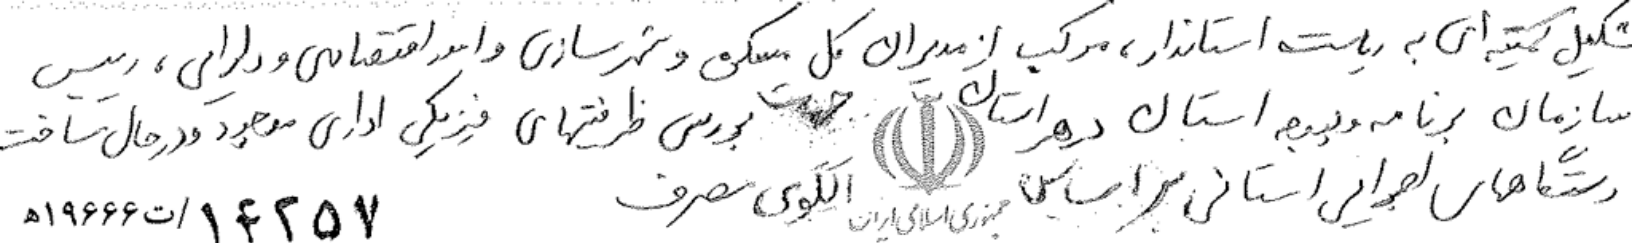 تشکیل کمیته‌ای به ریاست استاندار، مرکب از مدیران کل مسکن و شهرسازی و امور اقتصادی و دارایی، رییس
سازمان برنامه و بودجه استان در هر استان جهت بررسی ظرفیتهای فیزیکی اداری موجود و در حال ساخت
دستگاههای اجرایی استانی بر اساس الگوی مصرف
جمهوری اسلامی ایران
۱۴۲۵۷/ت۱۹۶۶۶ه